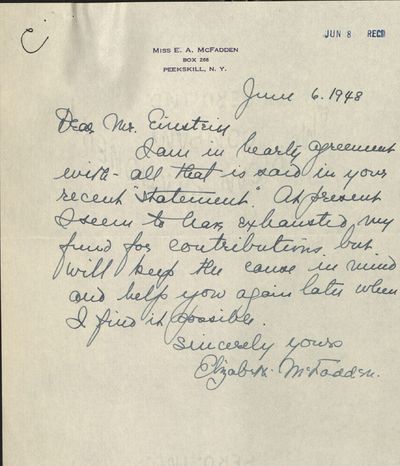 JUN 8 RECD
MISS E. A. McFADDEN
BOX 268
PEEKSKILL, N. Y.
June 6. 1948
Dear Mr. Einstein
I am in hearty agreement
with - all that is said in your
recent "statement". At present
I seem to have exhausted my
fund for contributions but
will keep the cause in mind
and help you again later when
I find it possible.
Sincerely yours
Elizabeth McFadden.